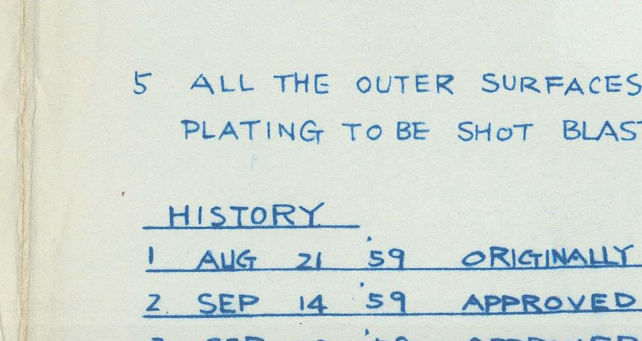 5 ALL THE OUTER SURFACES
PLATING TO BE SHOT BLAST
HISTORY
1 AUG 21 '59 ORIGINALLY
2. SEP 14 '59 APPROVED